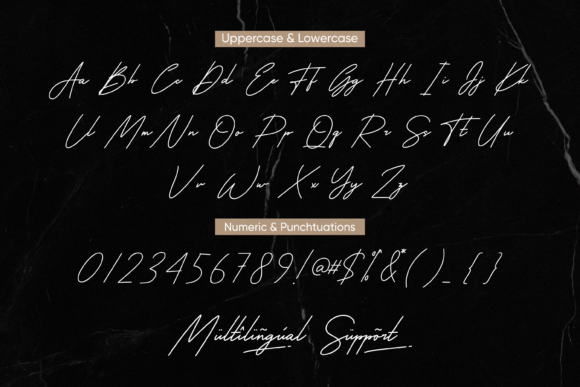 Uppercase & Lowercase
Aa Bb Cc Dd Ee Ff Gg Hh Ii Jj Kk
Ll Mm Nn Oo Pp Qq Rr Ss Tt Uu
Vv Ww Xx Yy Zz
Numeric & Punchtuations
0123456789!@#$%&*()_{}
Mültilïñgúal Süppõrt